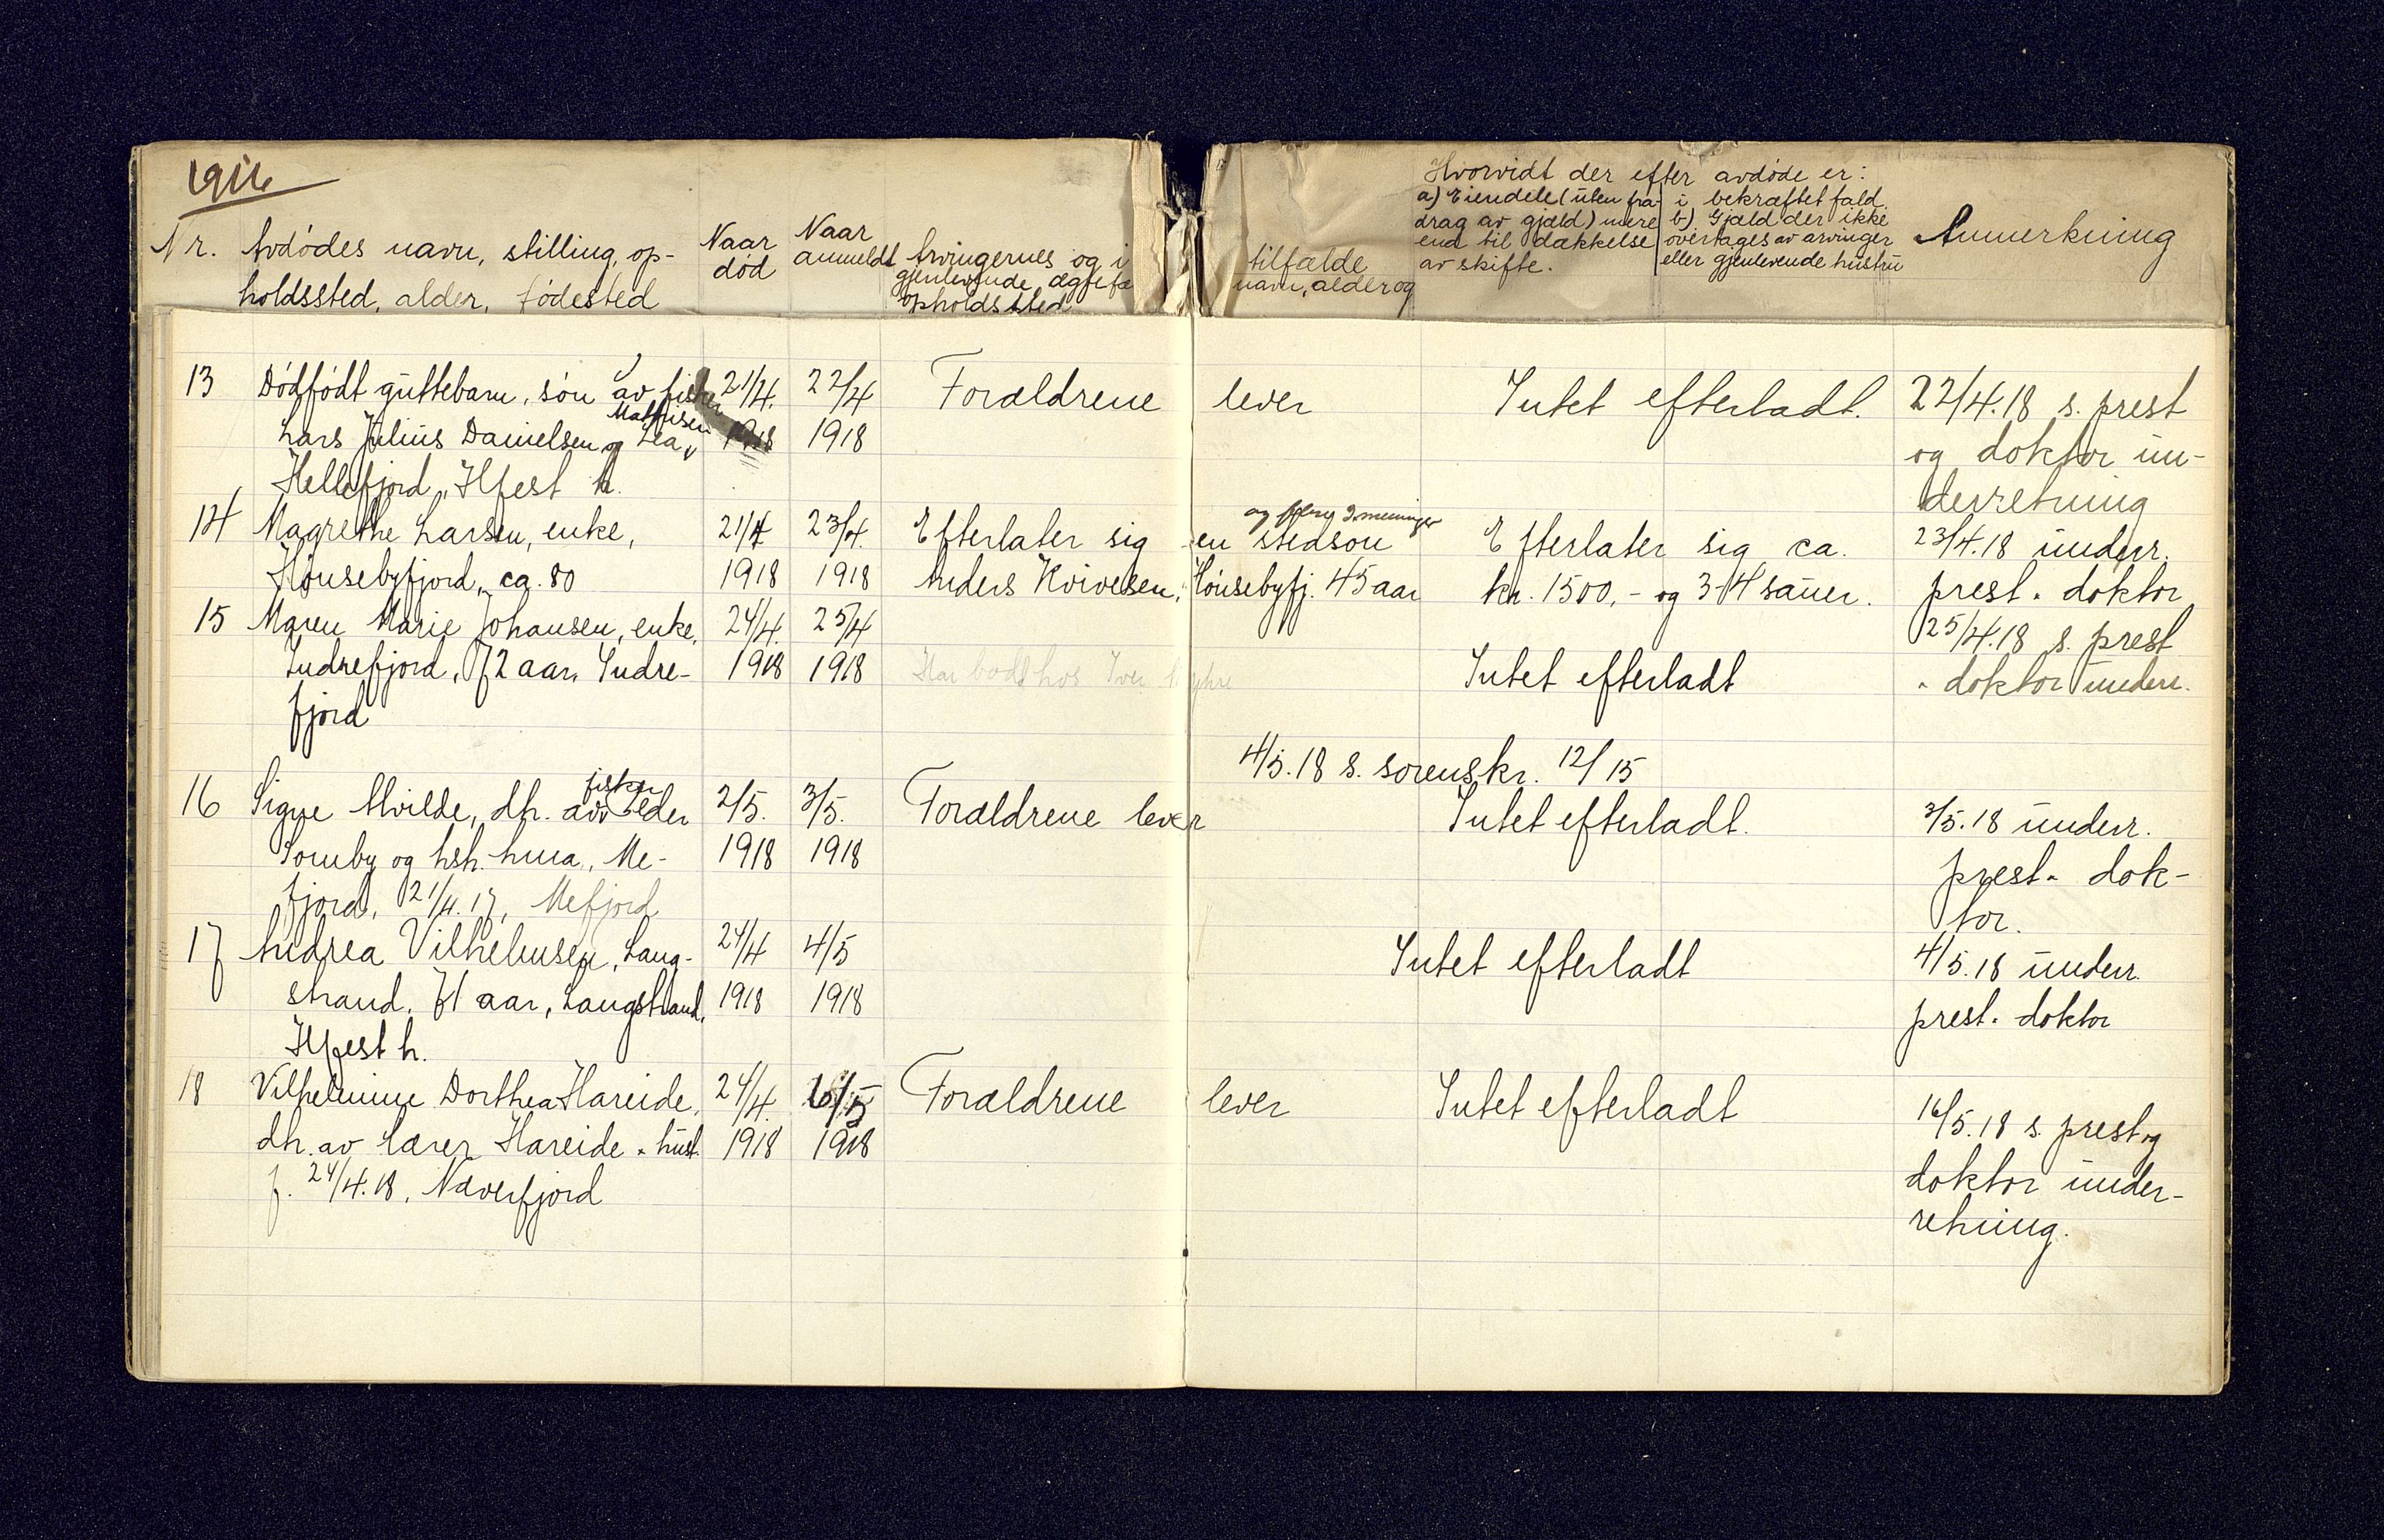 1916
Nr.
Avdødes navn, stilling, op-
holdssted, alder, fødested
Naar
død
Naar
anmeldt
Arvingernes og i
gjenlevende ægtefæ
opholdssted
tilfælde
navn, alder og
Hvorvidt der efter avdøde er:
a) Eiendele (uten fra-
drag av gjæld) mere
end til dækkelse
av skifte.
i bekræftet fald.
b) Gjæld der ikke
overtages av arvinger
eller gjenlevende hustru
Anmerkning
13 Dødfødt guttebarn, søn av fisker 21/4. 22/4 Forældrene lever Intet efterladt. 22/4.18 s. prest
Mathisen
Lars Julius Danielsen og Lea, 1918 1918 og doktor un-
Hellefjord, Hfest h. derretning
og flere 3menninger
14 Magrethe Larsen, enke, 21/4 23/4. Efterlater sig en stedsøn Efterlater sig ca. 23/4.18 underr.
Hønsebyfjord, ca. 80 1918 1918 Anders Kvivesen, Hønsebyfj. 45 aar kr. 1500,- og 3-4 sauer. prest " doktor
15 Maren Marie Johansen, enke, 24/4. 25/4 25/4.18 s. prest
Indrefjord, 72 aar, Indre- 1918 1918 Har bodd hos Iver Intet efterladt " doktor underr.
fjord
4/5.18 s. sorenskr. 12/15
fisker
16 Signe Alvilde, dh. av Peder 2/5. 3/5. Forældrene lever Intet efterladt. 3/5.18 underr.
Tornby og hsh. hma, Me- 1918 1918 prest " dok-
fjord, 21/4.17, Mefjord tor.
17 Andrea Vilhelmsen, Lang- 24/4 4/5 Intet efterladt 4/5.18 underr.
strand, 71 aar, Langstrand, 1918 1918 prest " doktor
Hfest h.
18 Vilhelmine Dorthea Hareide, 24/4. 16/5 Forældrene lever Intet efterladt 16/5.18 s. prest og
dh. av lærer Hareide " hust. 1918 1918 doktor under-
f. 24/4.18, Næverfjord retning.